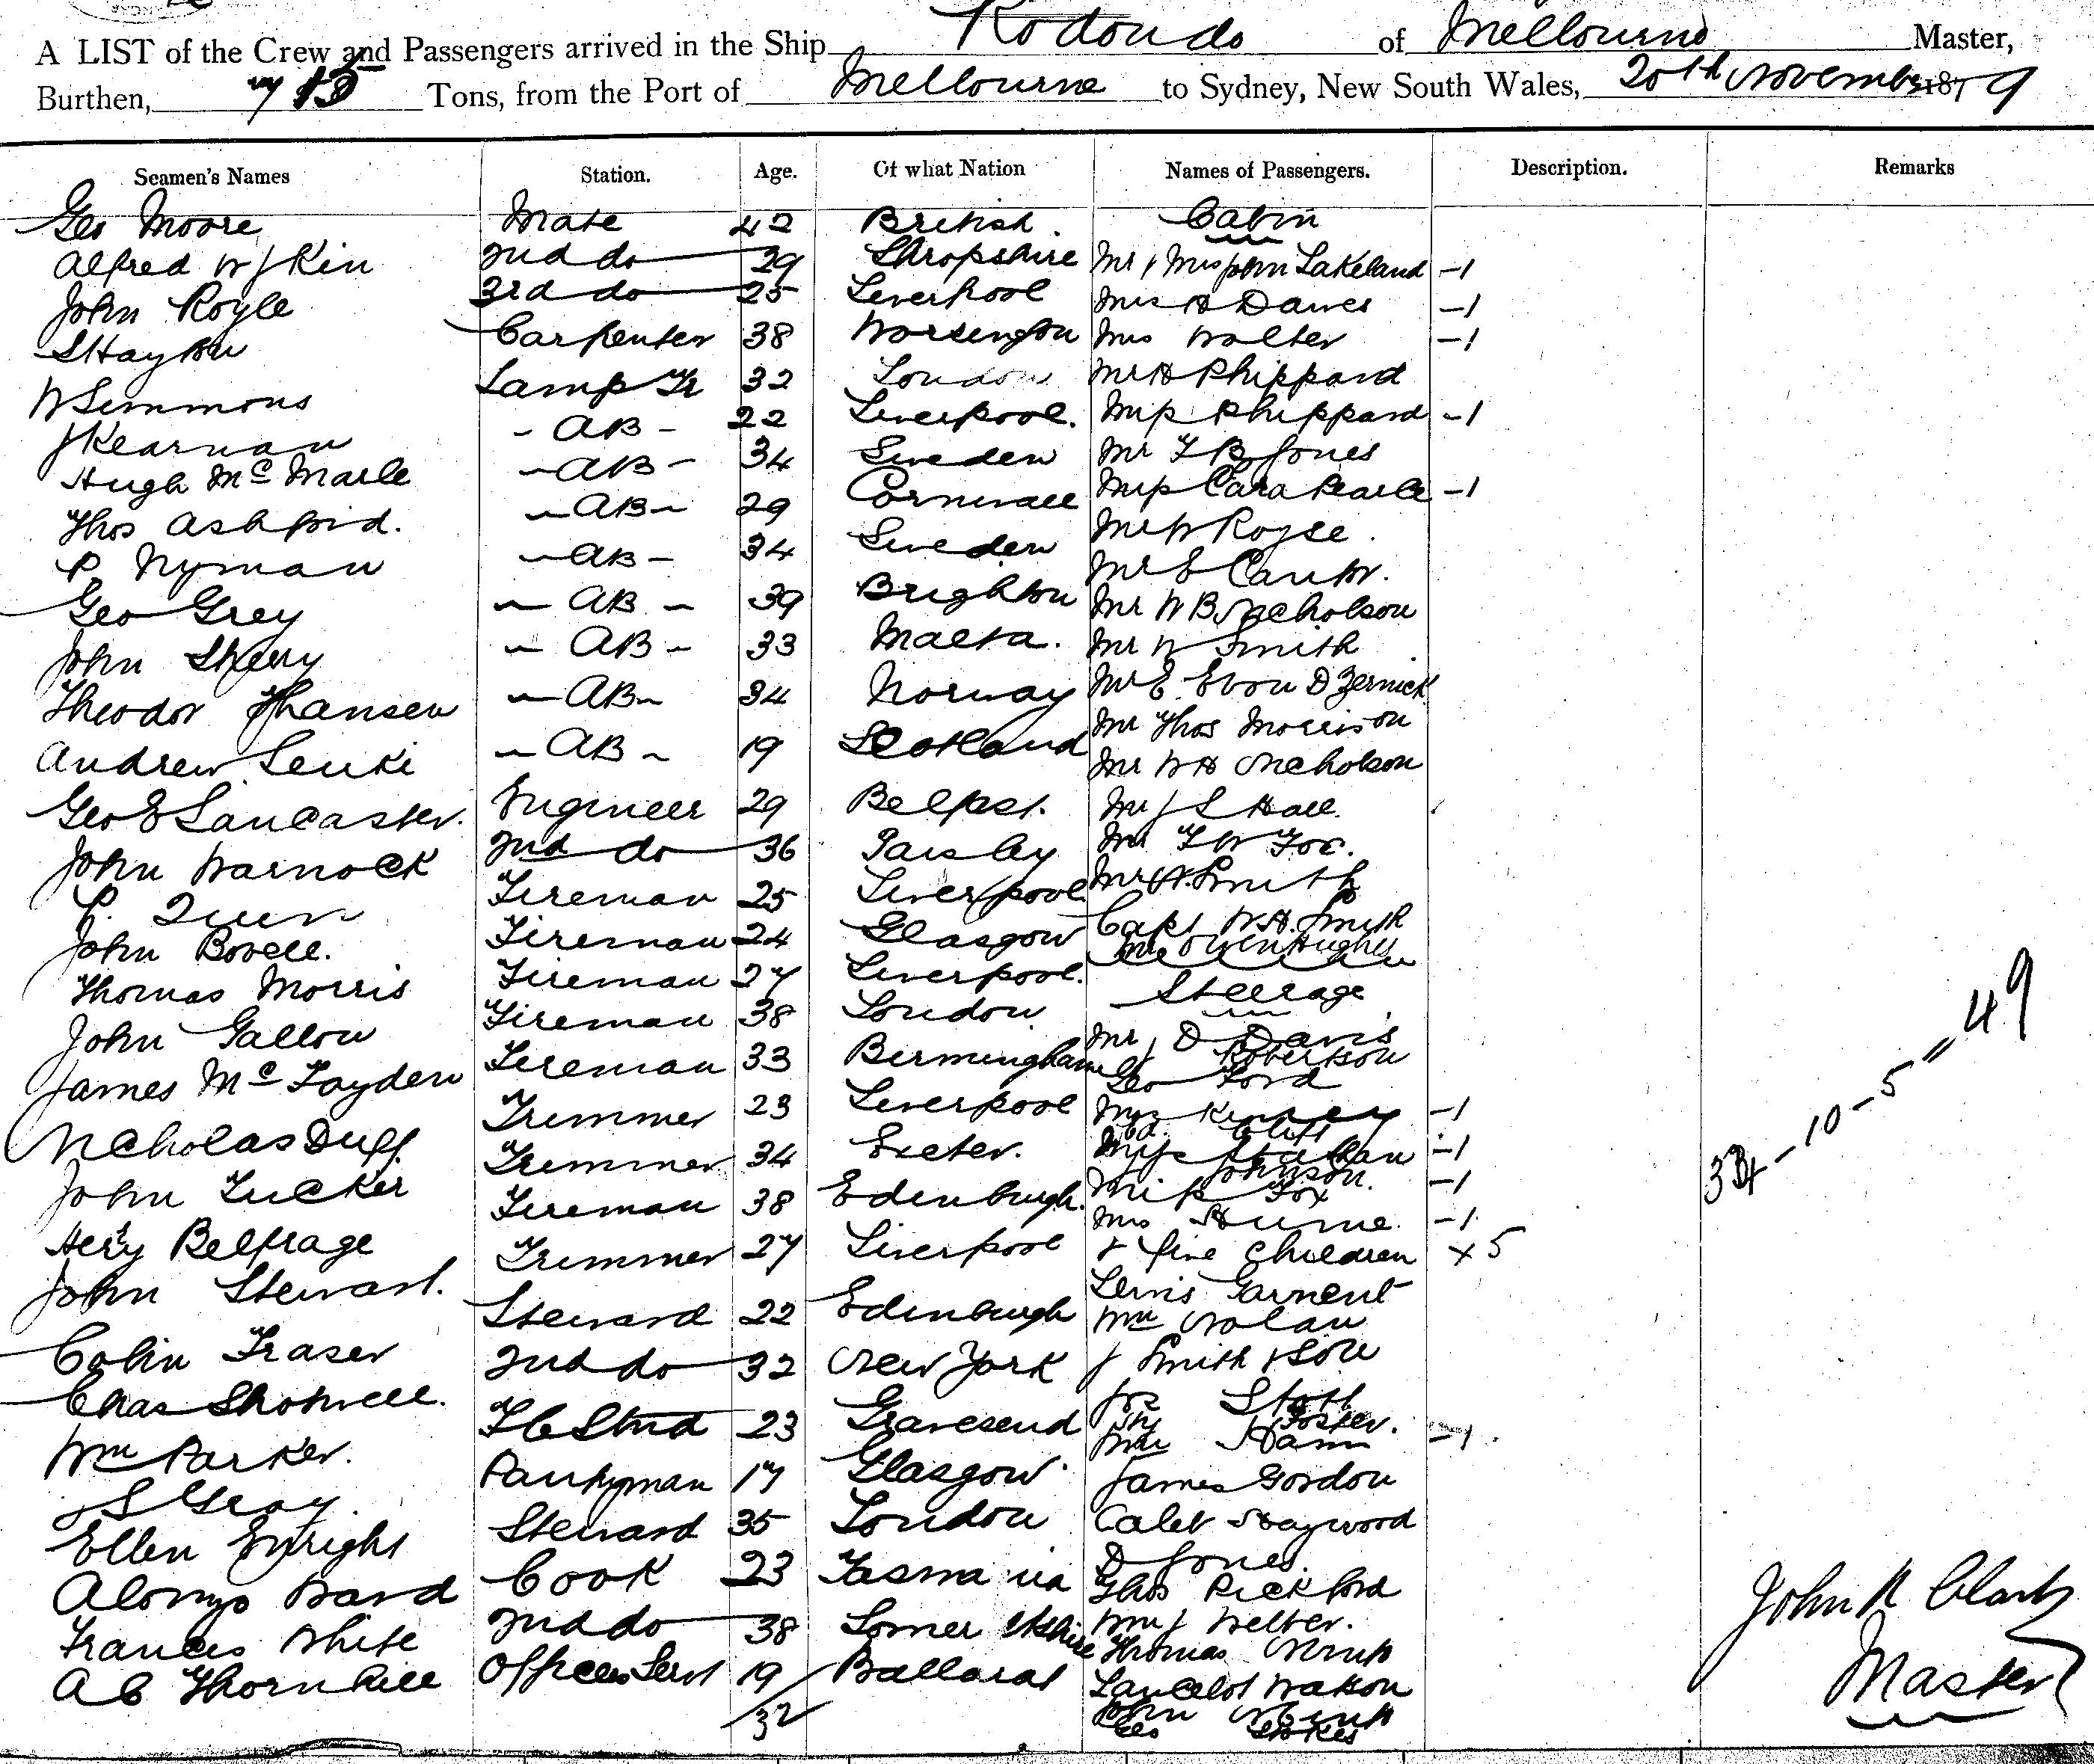 A LIST of the Crew and Passengers arrived in the Ship Rodondo of Melbourne Master,
Burthen, 715 Tons, from the Port of Melbourne to Sydney, New South Wales, 20th November 1879
Seamen's Names Station. Age. Of what Nation Names of Passengers. Description. Remarks
Geo Moore Mate 42 British. Cabin
Alfred W J Kin 2nd do 29 Shropshire Mr & Mrs John Lakeland -1
John Royle 3rd do 25 Liverpool Mrs H Dawes -1
S Hayton Carpenter 38 Mrs Wolter -1
W Simmons Lamp Tr 32 London Mr H Phippard
J Kearnan - AB - 22 Liverpool. Miss Phippard -1
Hugh Mc Marle - AB - 34 Sweden Mr F B Jones
Thos Ashford. - AB - 29 Cornwall Miss Cara Pearle -1
P Nyman - AB - 34 Sweden Mr W Royse.
Mr E Cantor.
Geo Grey - AB - 39 Brighton Mr W B Nicholson
John Sherry - AB - 33 Malta. Mr W Smith
Theodor Jhansen - AB - 34 Norway Mr E
Mr Thos Morrison
Andrew Leuki - AB - 19 Scotland Mr W H Nicholson
Geo E Lancaster. Engineer 29 Belfast. Mr J S Hall.
John Warnock 2nd do 36 Paisley Mr F W Fox.
P. Quin Fireman 25 Liverpool Mr H. Smith
John Bovell. Fireman 24 Glasgow Capt W. H. Smith
Mr Owen Hughes
Thomas Morris Fireman 27 Liverpool. Steerage
John Gallow Fireman 38 London Mr, D Davis
Robertson
James Mc Fayden Fireman 33 Birmingham Geo Ford
Nicholas Duff. Trimmer 23 Liverpool Mrs -1
Cliff
John Tucker Trimmer 34 Exeter. -1
Johnson.
Hery Belfrage Fireman 38 Edinburgh. Miss Fox -1
Mrs Hume. -1
John Stewart. Trimmer 27 Liverpool & five children x 5
Lewis Garnent
Colin Fraser Steward 22 Edinburgh Wm Nolan
Chas Shotwell. 2nd do 32 New York J Smith & Son
Jos Stott
Foster.
Wm Parker. F C Stwd 23 Gravesend Mrs Hann -1.
S Gray Pantryman 17 Glasgow James Gordon
Ellen Enright Steward 35 London Caleb Haywood
D Jones.
Alonzo Ward Cook 23 Tasmania Thos Pickford
Frances White 2nd do 38 Somersetshire Wm J Welber.
Thomas
A C Thornhill Officers Servt 19 Ballarat Lancelot Watson
32 John
Geo Stokes
34 - 10 - 5 " 49
John R Clark
Master